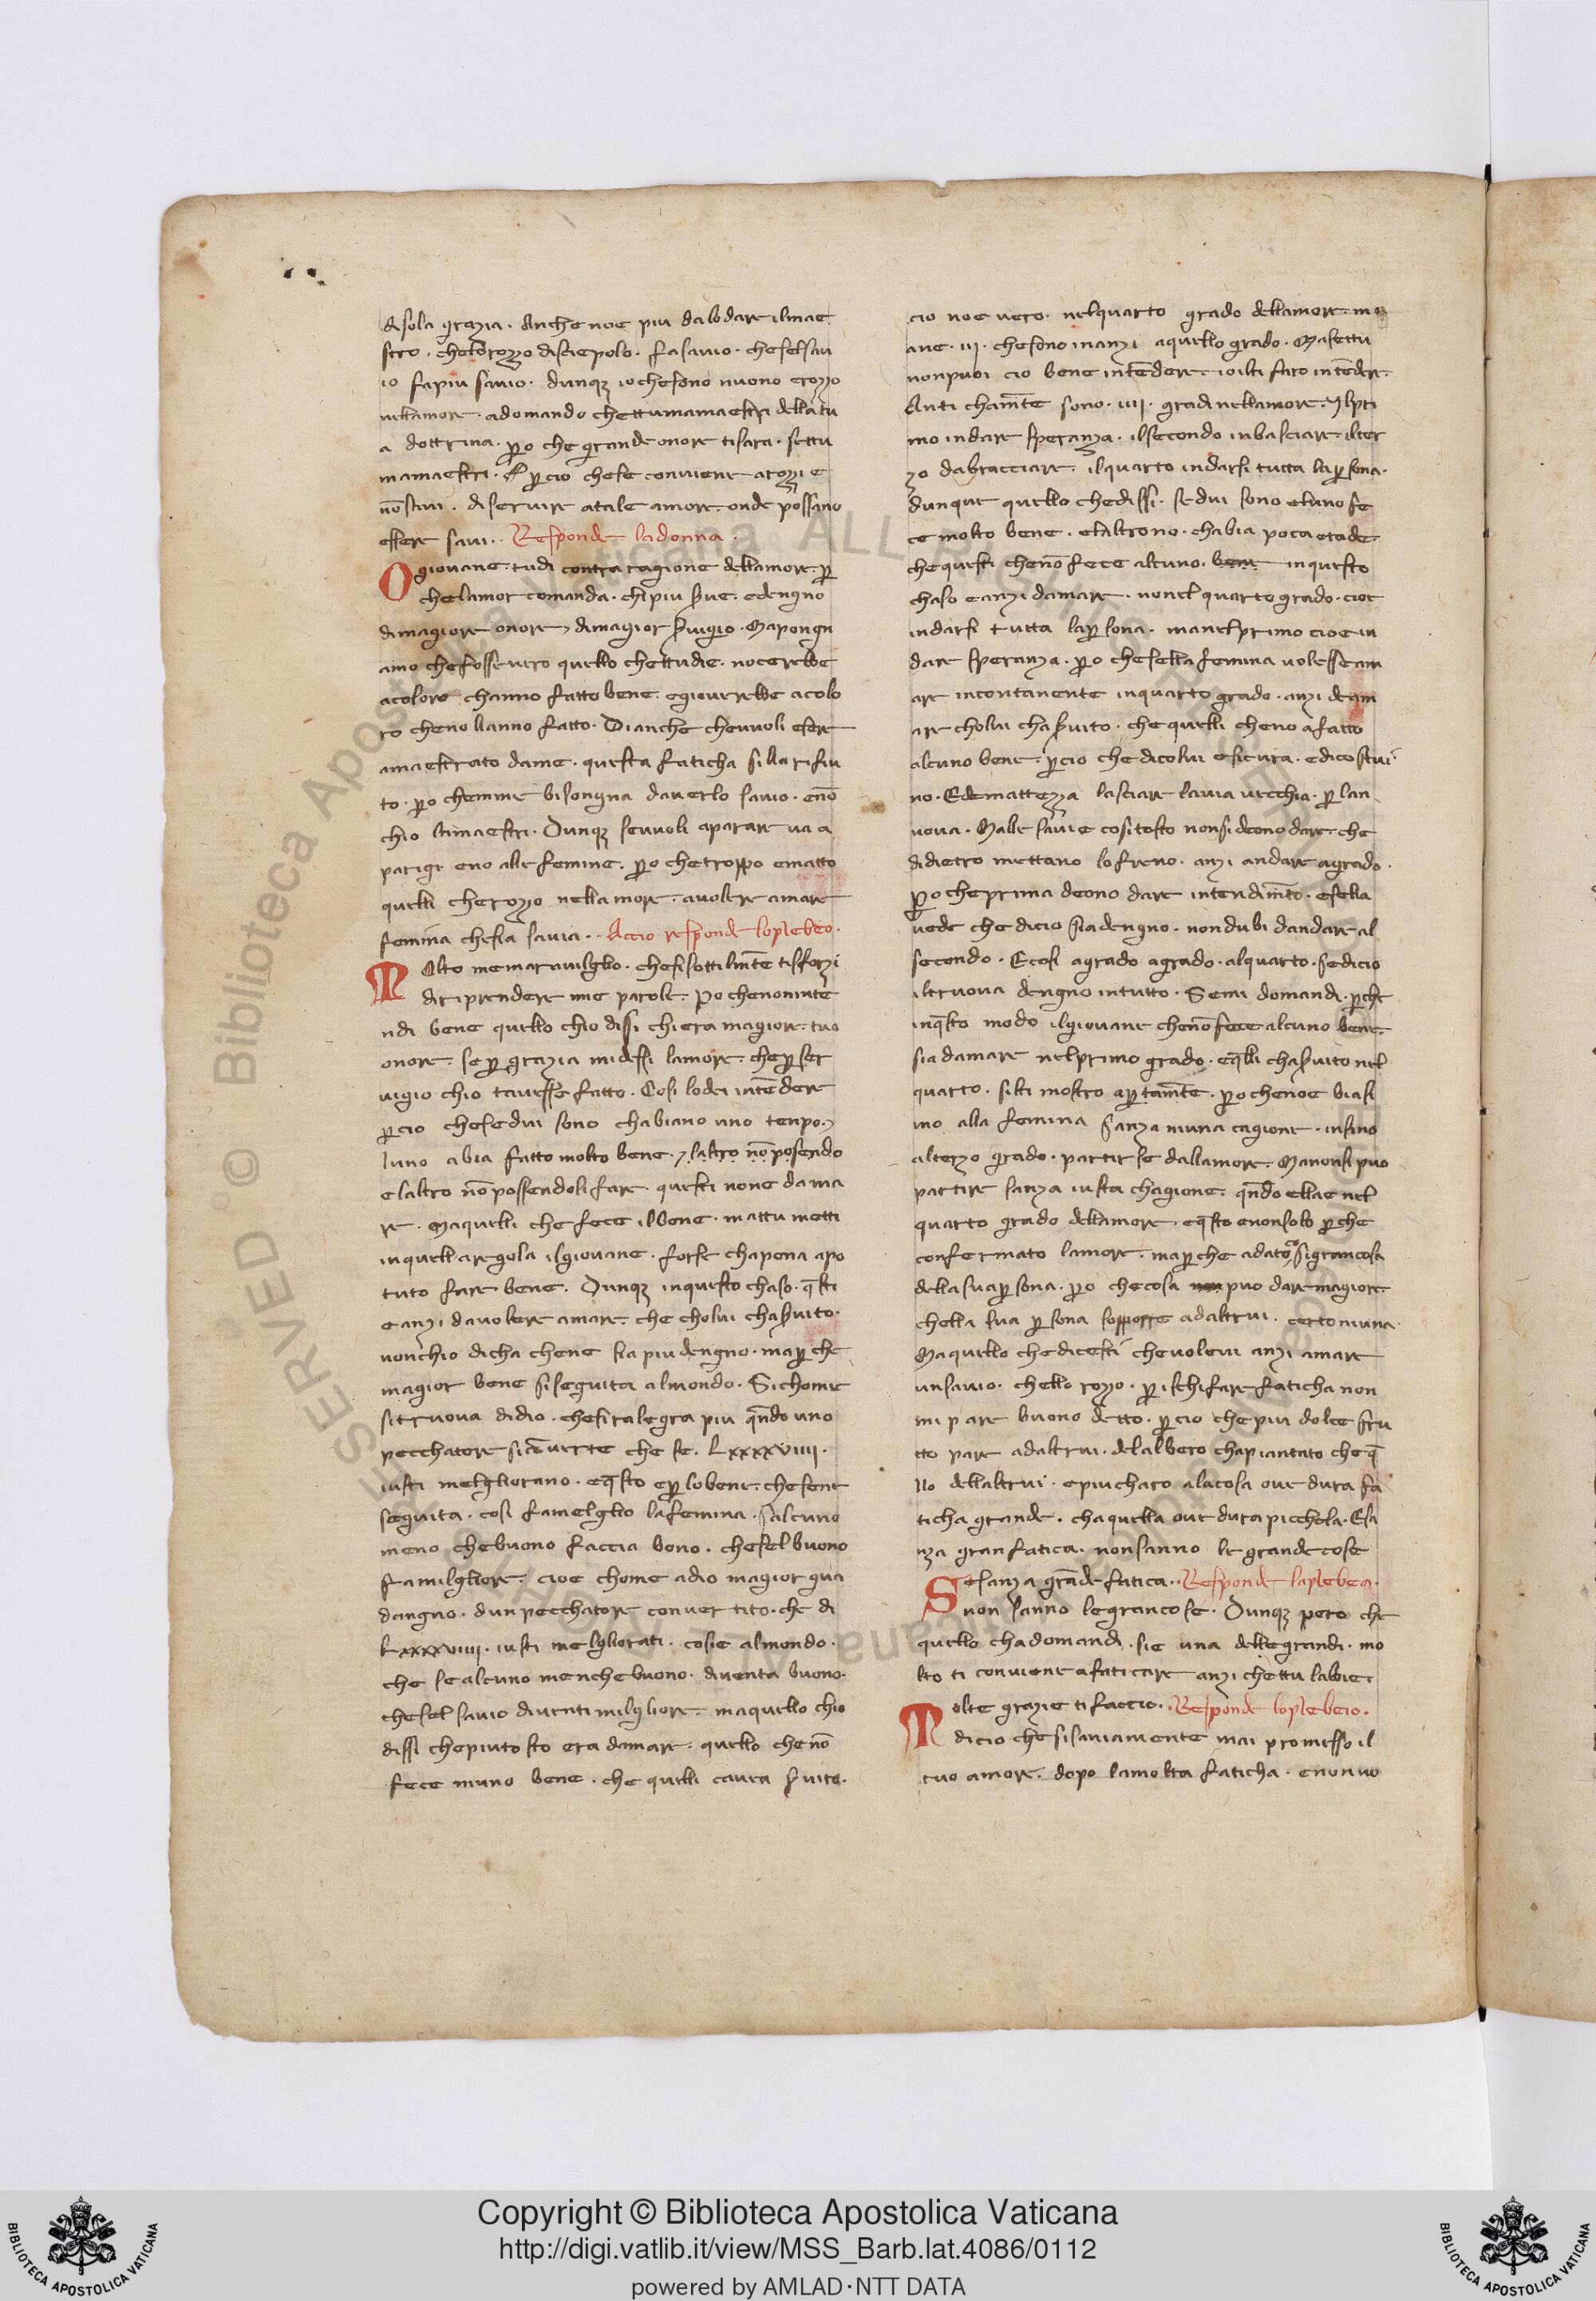 di sola grazia. Anche noe piu dalodare ilmae
stro. chelorozzo disciepolo. fa sauio. chesel sau
io fa piu sauio. dunqz io che sono nuouo erozzo
nellamore. adomando chettumamaestri dellatu
a dottrina. po che grande onore tisara. settu
mamaestri. E pcio chese conuiene arozzi e
nō saui. di seruire atale amore. onde possano
essere saui. Responde ladonna.
O giouane. tudi contra ragione dellamore. p
chelamor comanda. chi piu serue. edengno
dimagiore onore, dimagior seruigio. Mapongn
amo che fosse uero quello chettudie. nocerebbe
acoloro channo fatto bene. egiouerebbe acolo
ro cheno llanno fatto. Di anche cheuuoli esere
amaestrato dame. questa faticha silla rifiu
to. po chemme bisongna dauerlo sauio. enō
chio lamaestri. Dunqz seuuoli aparare ua a
parigi eno alle femine. po chetroppo ematto
quelli cherozzo nellamore. auolere amare
femina chesia sauia. Accio responde loplebeo.
Molto memarauilglio. chesisottilmēte tisforzi
di riprendere mie parole. Po chenominte
ndi bene quello chio dissi chi era magiore. tuo
onore. se p grazia midessi lamore. che p ser
uigio chio tauesse fatto. Cosi lodei intēdere
pcio chese dui sono chabiano uno tenpo,
luno abia fatto molto bene. , laltro nō posendo
elaltro nō possendoli fare. questi none dama
re. Maquelli che fece il bene. mattu metti
inquella regola ilgiouane. forse chapena apo
tuto fare bene. Dunqz inquesto chaso. qsti
eanzi dauolere amare. che cholui chaseruito.
nonchio dicha chene sia piu dengno. ma pche
magior bene siseguita almondo. Sichome
sitruoua didio. chesiralegra piu qndo uno
pecchatore sicōuerte che se. Lxxxxviiii.
iusti melgliorano. eqsto ep lobene. chesene
seguita. cosi famelglio lafemina. salcuno
meno chebuono faccia bono. chesel buono
familgliore. cioe chome adio magior gua
dangno. dun pecchatore conuertito. che di
Lxxxxviiii. iusti melgliorati. cosie almondo.
che se alcuno menchebuono. diuenta buono.
chesel sauio diuenti milgliore. maquello chio
dissi chepiutosto era damare. quello chenō
fece niuno bene. che quelli caueа seruito.
cio noe uero. nelquarto grado dellamore. mo
aue. iij. chesono inanzi aquello grado. Masettu
nonpuoi cio bene intēdere. ioilti faro intēder.
Anti chamēte sono. iiij. gradi nellamore. ylpri
mo indare speranza. ilsecondo inbasciare. ilter
zo dabracciare. ilquarto indarsi tutta lapsona.
dunque quello chedissi. se dui sono eluno fe
ce molto bene. elaltrono. chabia poca etade.
che questi chenō fece alcuno. bene inquesto
chaso eanzi damare. nonel quarto grado. cioe
indarsi tutta lapsona. manelprimo cioe in
dare speranza. po chesella femina uolesse am
are incontanente inquarto grado. anzi deam
are cholui chaseruito. che quelli cheno a fatto
alcuno bene. pcio che dicolui esicura. edicostui
no. Edemattezza lasciare lauia uecchia. p lan
uoua. Malle sauie cositosto nonsi deono dare. che
didietro mettano lofreno. anzi andare agrado.
po cheprima deono dare intendimēto. esella
uede che dicio sia dengno. nondubi dandare al
secondo. Ecosi agrado agrado. alquarto. sedicio
iltruoua dengno intutto. Semi domandi. pche
inqsto modo ilgiouane chenō fece alcuno bene.
sia damare nelprimo grado. eqlli chaseruito nel
quarto. silti mostro aptamēte. po chenoe biasi
mo alla femina sanza niuna cagione. insino
alterzo grado. partirse dallamore. Manonsi puo
partire sanza iusta chagione. qndo ellae nel
quarto grado dellamore. eqsto enonsolo pche
confermato lamore. mapche adato sigrancosa
dellasuapsona. po checosa non puo dare magiore
chella sua psona sopporre adaltrui. certo niuna.
Maquello chedicesti cheuoleui anzi amare
unsauio. chello rozzo. p ischifare faticha non
mi pare buono detto. pcio chepiu dolce fru
tto pare adaltrui. delalbero chapiantato che q
llo dellaltrui. epiu charo alacosa oue dura fa
ticha grande. chaquella oue dura picchola. Esa
nza gran fatica. nonsanno le grande cose
Sesanza grāde fatica. Responde laplebea.
non sanno legrancose. Dunqz pero che
quello chadomandi. sie una dellegrandi. mo
lto ti conuiene afaticare anzi chettu labbie.
Molte grazie ti faccio. Responde loplebeio.
dicio che sisauiamente mai promesso il
tuo amore. dopo lamolta faticha. enonuo
Copyright © Biblioteca Apostolica Vaticana
http://digi.vatlib.it/view/MSS_Barb.lat.4086/0112
powered by AMLAD·NTT DATA
BIBLIOTECA APOSTOLICA VATICANA
BIBLIOTECA APOSTOLICA VATICANA